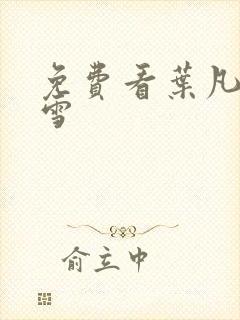 免費看葉凡
雪
俞立中